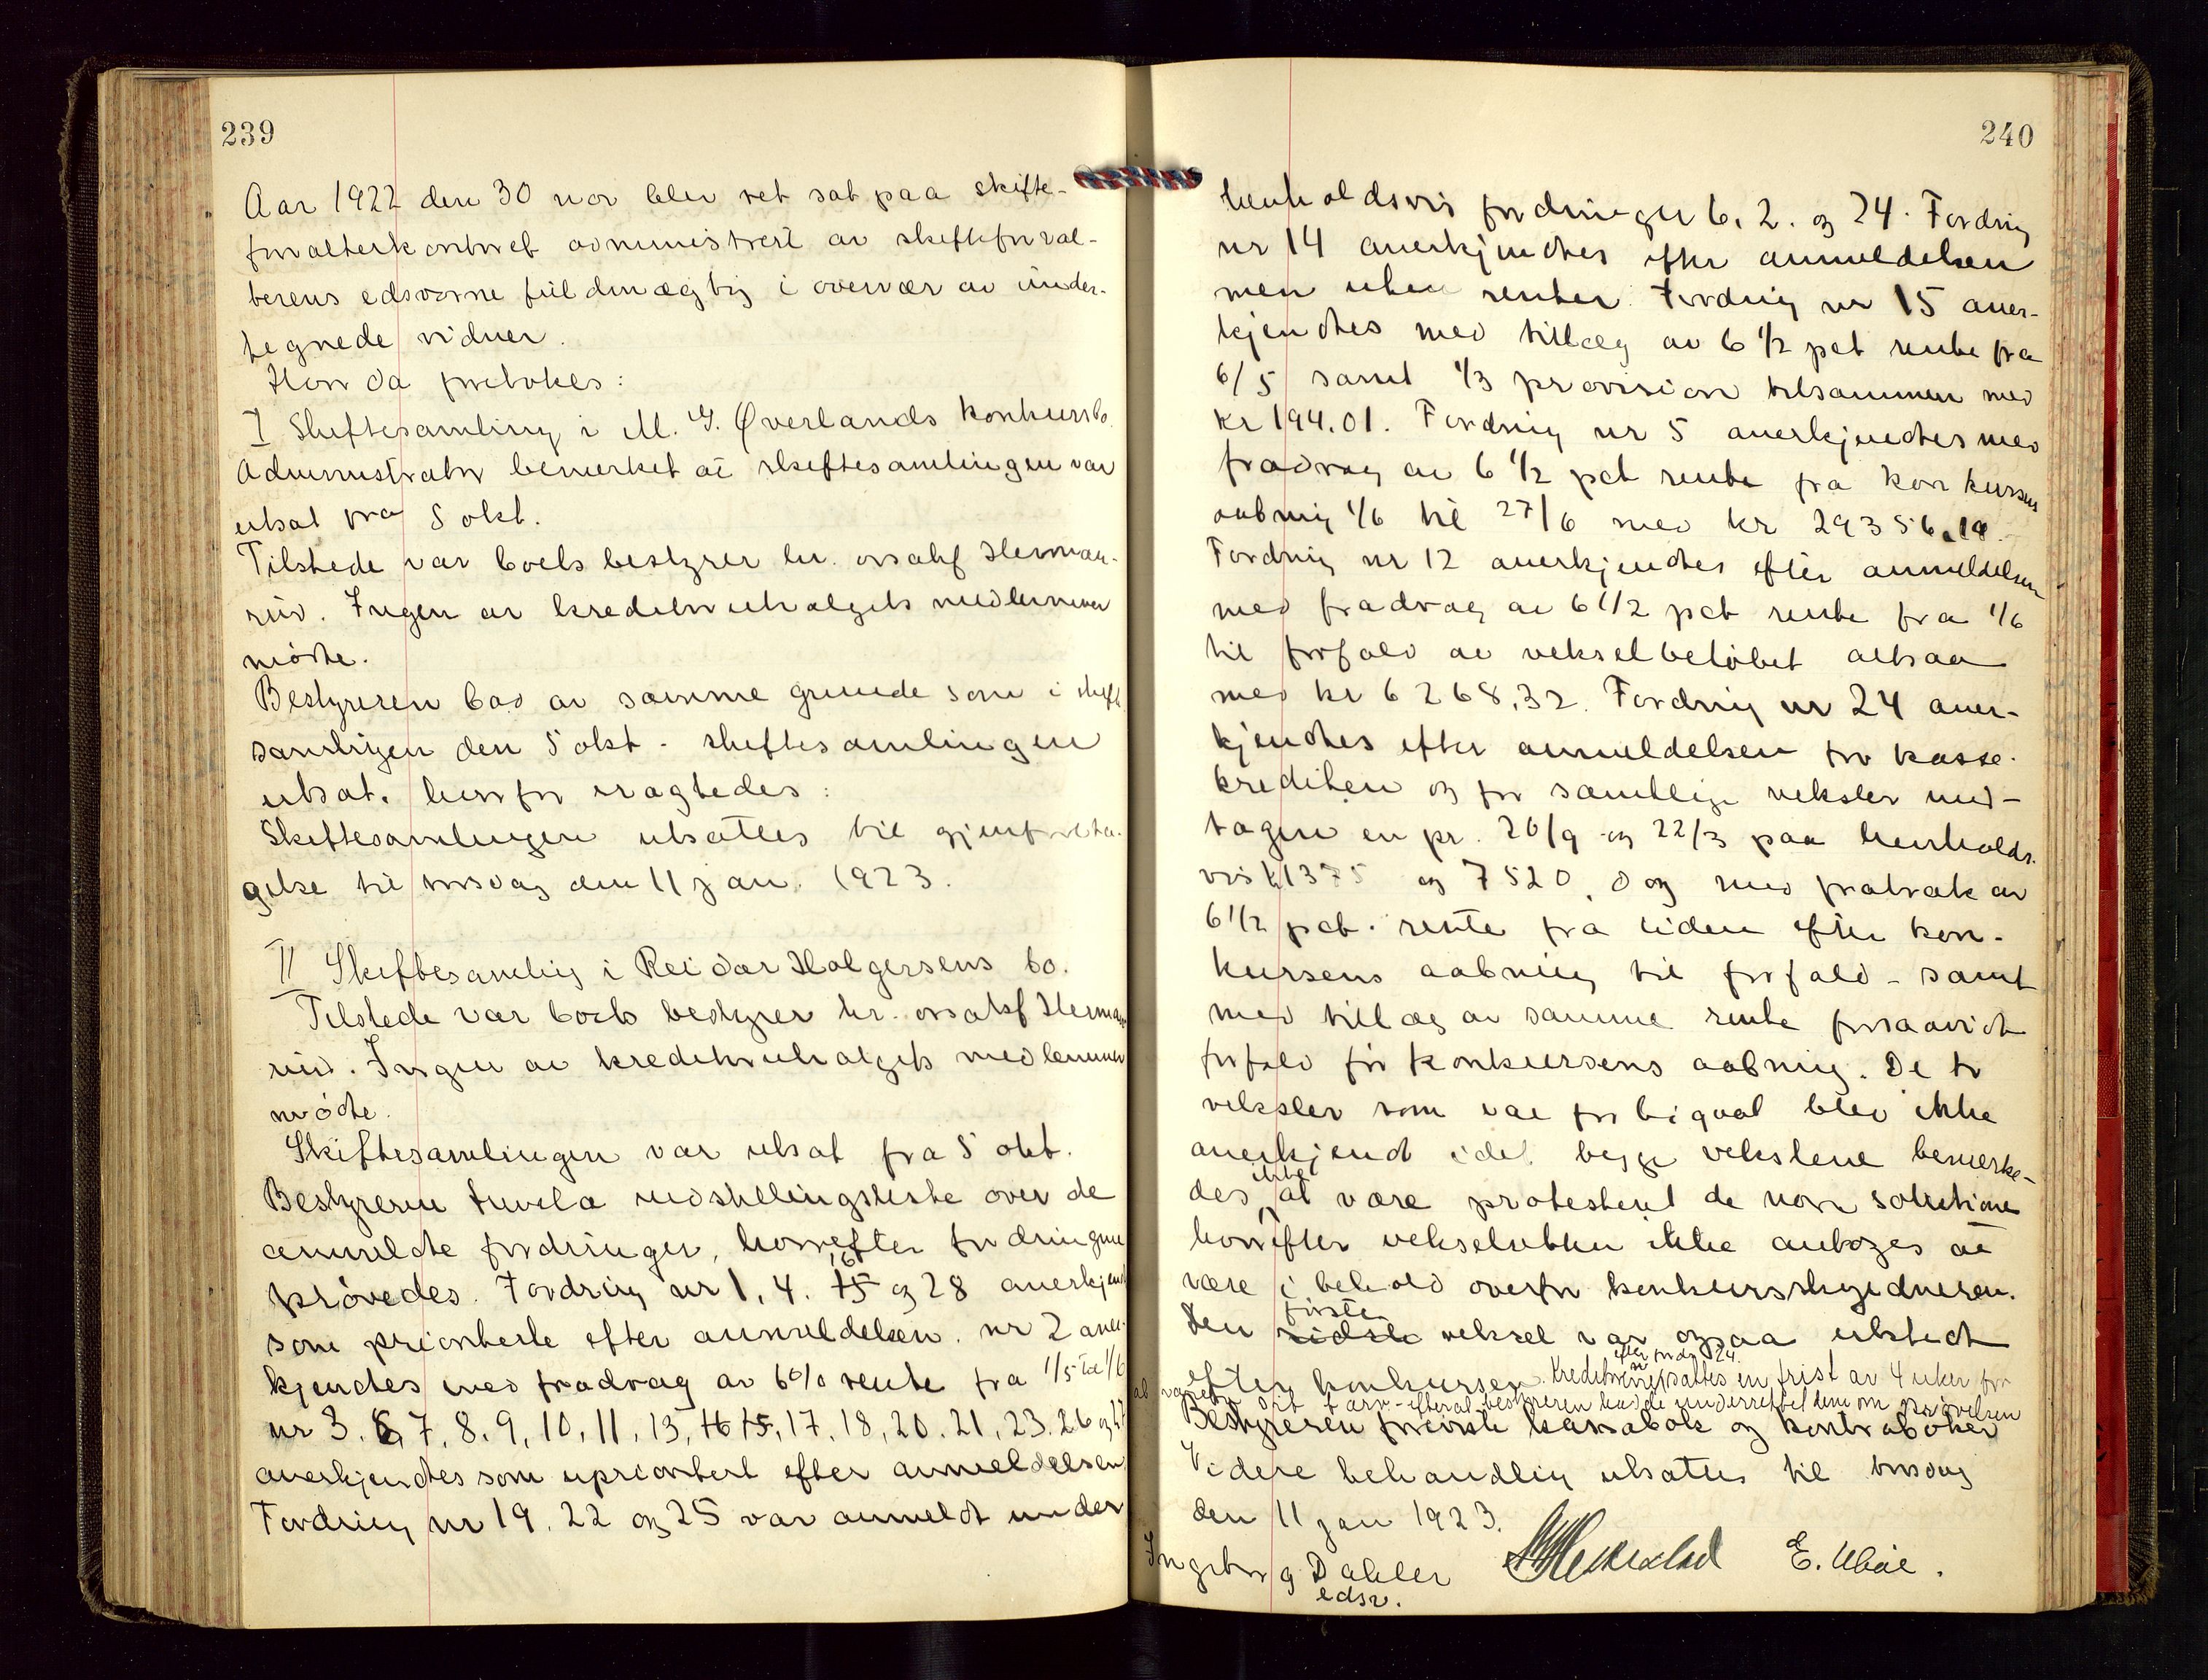 239
Aar 1922 den 30 nov blev ret sat paa skifte-
forvalterkontoret administrert av skifteforval-
terens edsvorne fuldmægtig i overvær av under-
tegnede vidner.
Hvor da foretokes:
I Skiftesamling i M. G. Øverlands konkursbo.
Administrator bemerket at skiftesamlingen var
utsat fra 5 okt.
Tilstede var boets bestyrer hr. orsakf Herman-
rud. Ingen av kreditorutvalgets medlemmer
møtte.
Bestyreren bad av samme grunde som i skifte
samlingen den 5 okt. skiftesamlingen
utsat. hvorfor eragtedes:
Skiftesamlingen utsattes til gjenforeta-
gelse til torsdag den 11 jan. 1923.
II Skiftesamling i Reidar Holgersens bo.
Tilstede var boets bestyrer hr. orsakf Herman
rud. Ingen av kreditorutvalgets medlemmer
møtte.
Skiftesamlingen var utsat fra 5 okt.
Bestyreren fremla indstillingsliste over de
anmeldte fordringer, hvorefter fordringene
prøvedes. Fordring nr 1, 4. 15 16, og 28 anerkjend
som prioriterte efter anmeldelsen. nr 2 aner-
kjendtes med fradrag av 6% rente fra 1/5 til 1/6
nr 3. 6, 7, 8, 9, 10, 11, 13, 16 15, 17, 18, 20. 21, 23. 26 og 27
anerkjendtes som uprioritert efter anmeldelsen.
Fordring nr 19. 22 og 25 var anmeldt under
240
henholdsvis fordringer 6, 2. og 24. Fordring
nr 14 anerkjendtes efter anmeldelsen
men uten renter. Fordring nr 15 aner-
kjendtes med tillæg av 6 1/2 pct rente fra
6/5 samt 1/3 provision tilsammen med
kr 194.01. Fordring nr 5 anerkjendtes med
fradrag av 6 1/2 pct rente fra konkursens
aabning 1/6 til 27/6 med kr 29356.19.
Fordring nr 12 anerkjendtes efter anmeldelsen
med fradrag av 6 1/2 pct rente fra 1/6
til forfald av vekselbeløbet altsaa
med kr 6268,32. Fordring nr 24 aner-
kjendtes efter anmeldelsen for kasse-
krediten og for samtlige veksler und-
tagen en pr. 20/9 og 22/3 paa henholds-
vis kr 1375 og 7520, dog med fratræk av
6 1/2 pct. rente fra tiden efter kon-
kursens aabning til forfald - samt
med tillæg av samme rente forsaavidt
forfald før konkursens aabning. De to
veksler som var forbigaat blev ikke
anerkjendt idet begge vekslene bemerke-
des ikke at være protestert de non solutione
hvorefter vekselretten ikke antages at
være i behold overfor konkursskyldneren.
Den sidste første veksel var ogsaa utstedt
efter konkursen. Kreditoren efter fordr 24. sattes en frist av 4 uker for
at vareta sit tarv - efterat bestyreren hadde underrettet dem om prøvelsen
Bestyreren foreviste kassabok og kontrabøker
Videre behandling utsattes til torsdag
den 11 jan 1923.
Ingeborg Dahler
edsv.
E. Uboe.